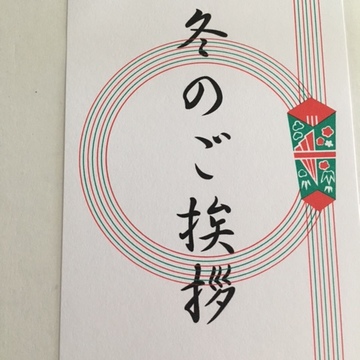 冬のご挨拶